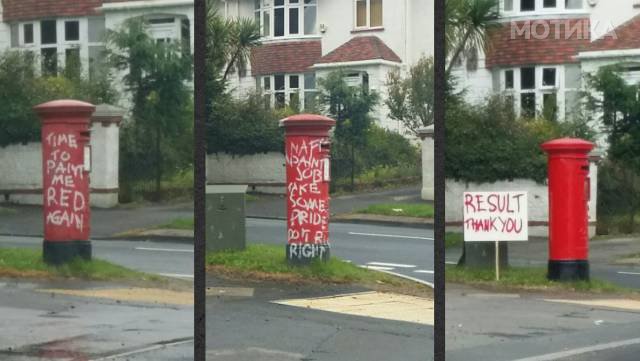 TIME
TO
PAINT
ME
RED
AGAIN
NAFF
PAINT
SOB
TAKE
SOME
PRIDE
DO IT RI
RIGHT
RESULT
THANK YOU
МОТИКА